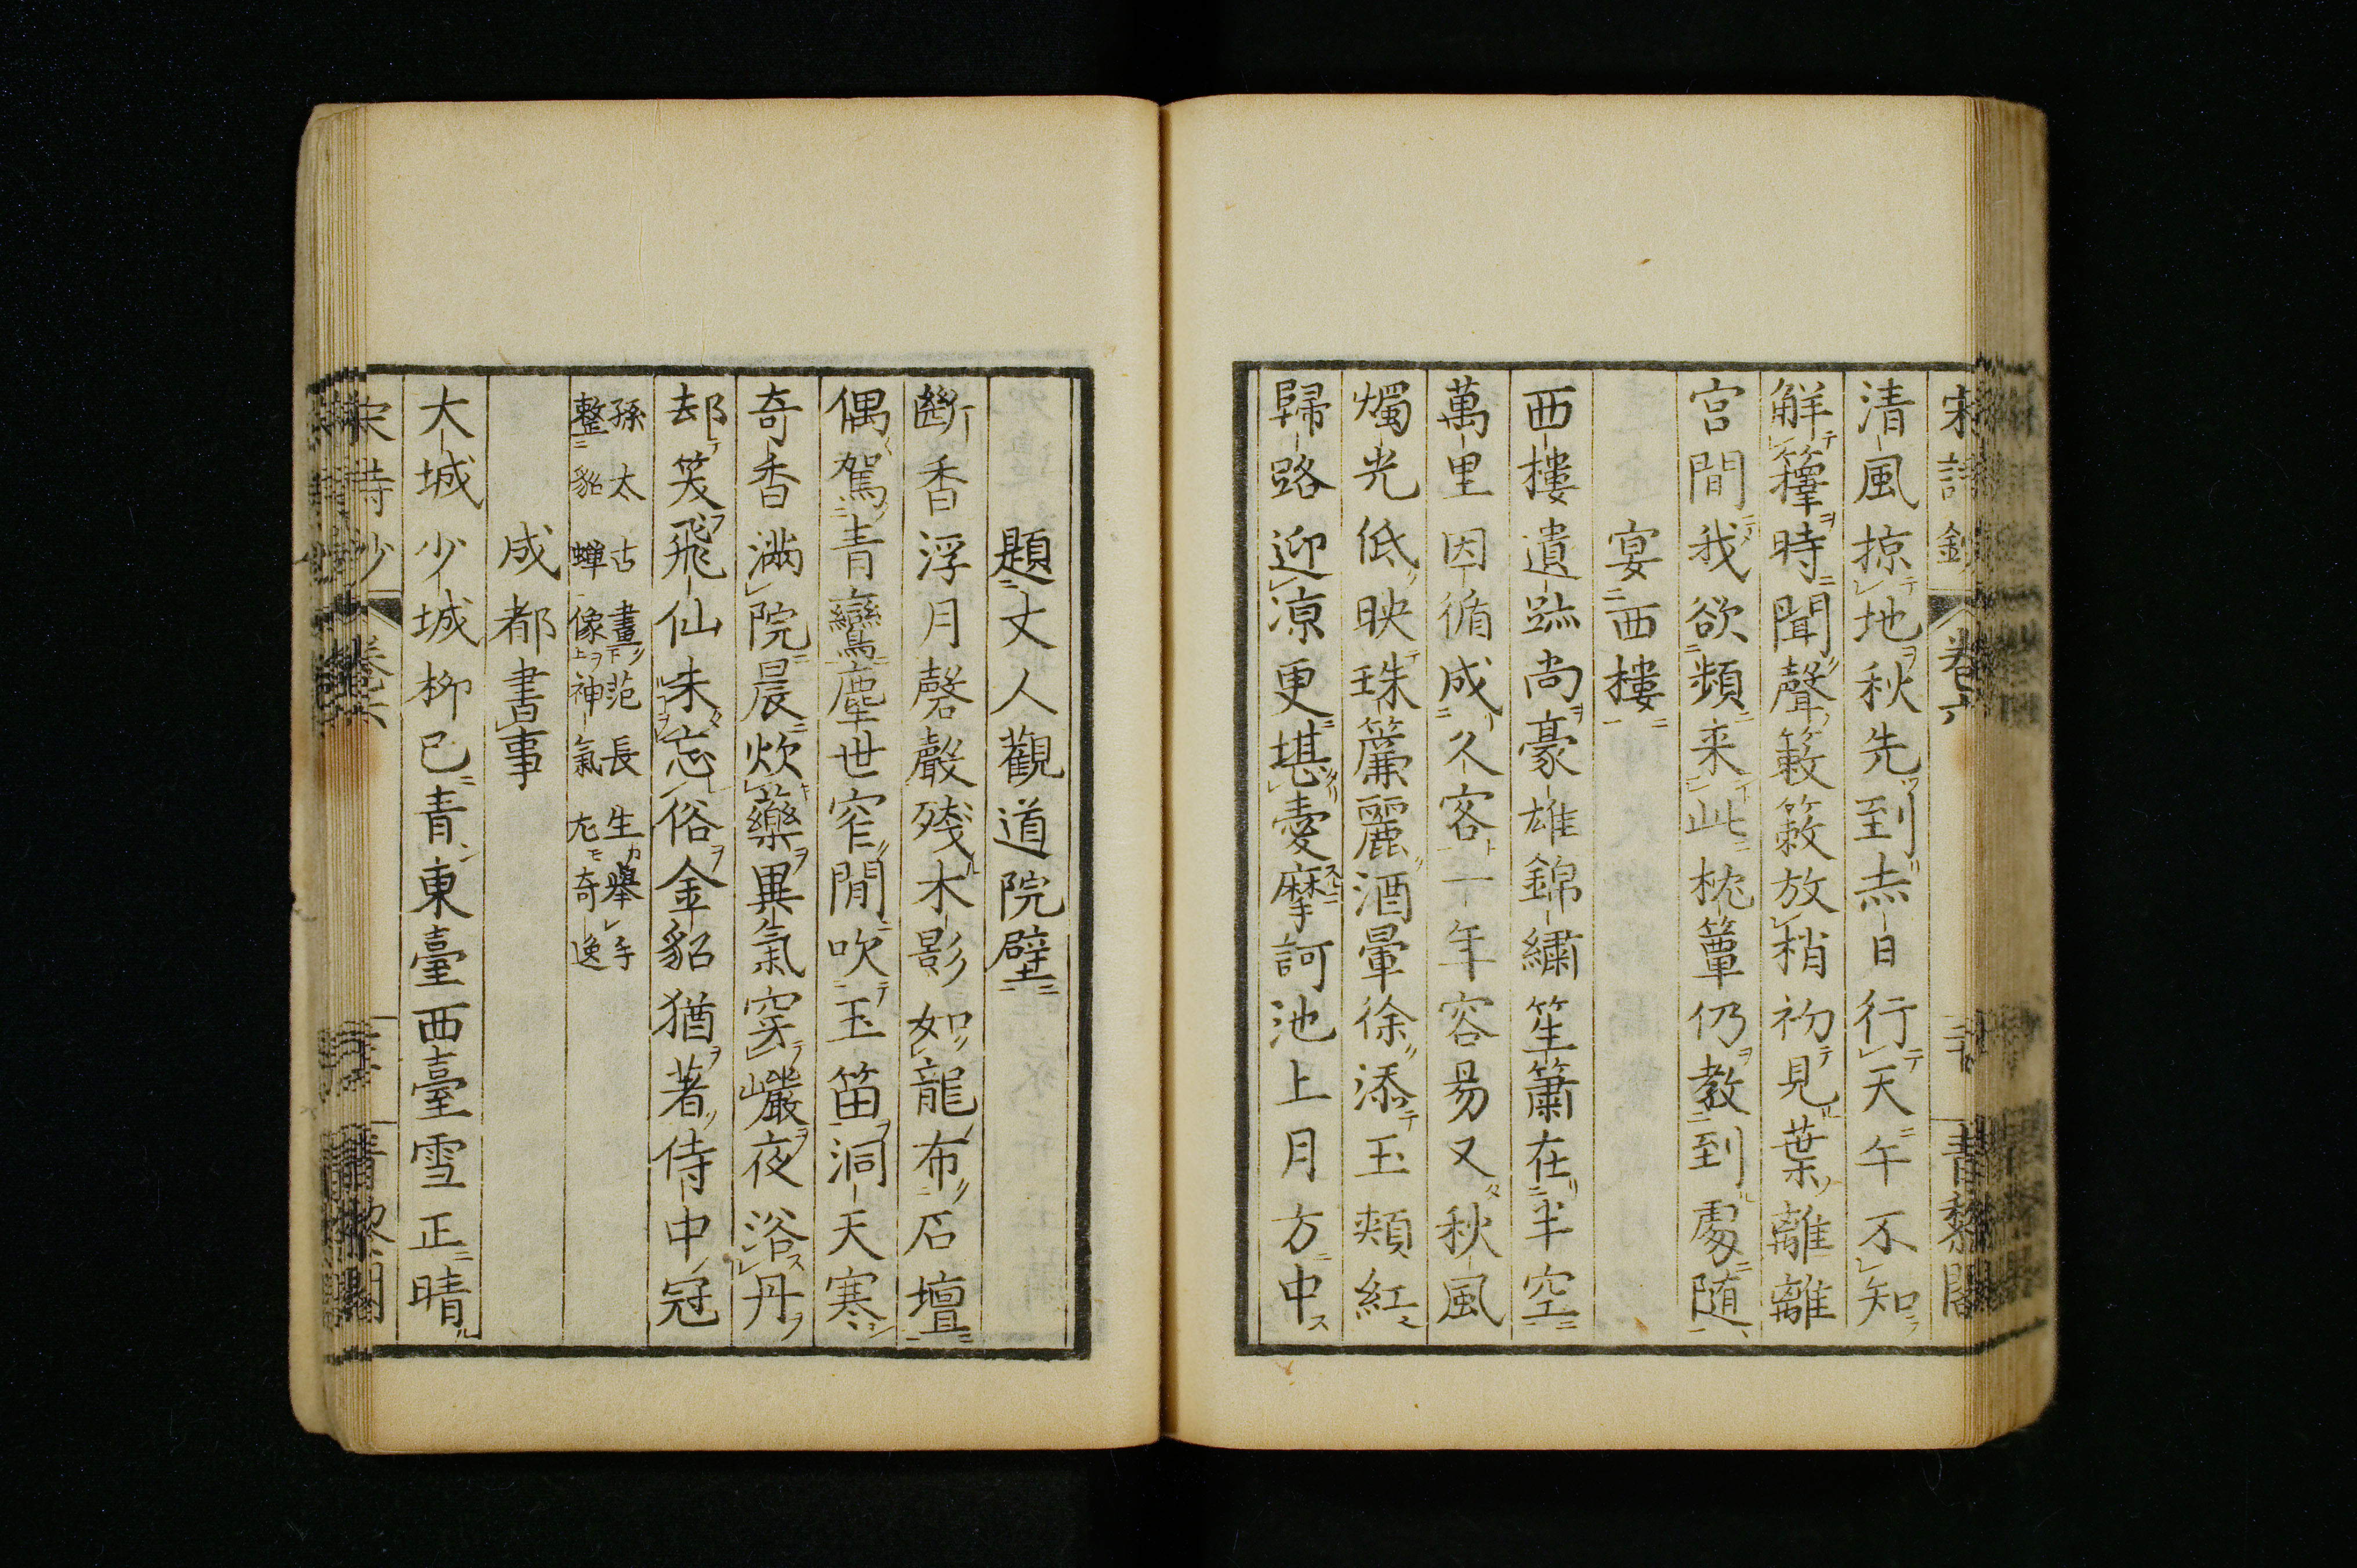 宋詩鈔 卷六 青黎閣
清風掠地秋先到赤日行天午不知
解籜時聞聲簌簌放梢初見葉離離
官閒我欲頻來此枕簟仍教到處隨
宴西樓
西樓遺跡尚豪雄錦繡笙簫在半空
萬里因循成久客一年容易又秋風
燭光低映珠簾麗酒暈徐添玉頰紅
歸路迎涼更堪愛摩訶池上月方中
題丈人觀道院壁
斷香浮月磬聲殘木影如龍布石壇
偶駕青鸞塵世窄閒吹玉笛洞天寒
奇香滿院晨炊藥異氣穿巖夜浴丹
却笑飛仙未忘俗金貂猶著侍中冠
孫太古畫范長生舉手
整貂蟬像神氣尤奇逸
成都書事
大城少城柳已青東臺西臺雪正晴